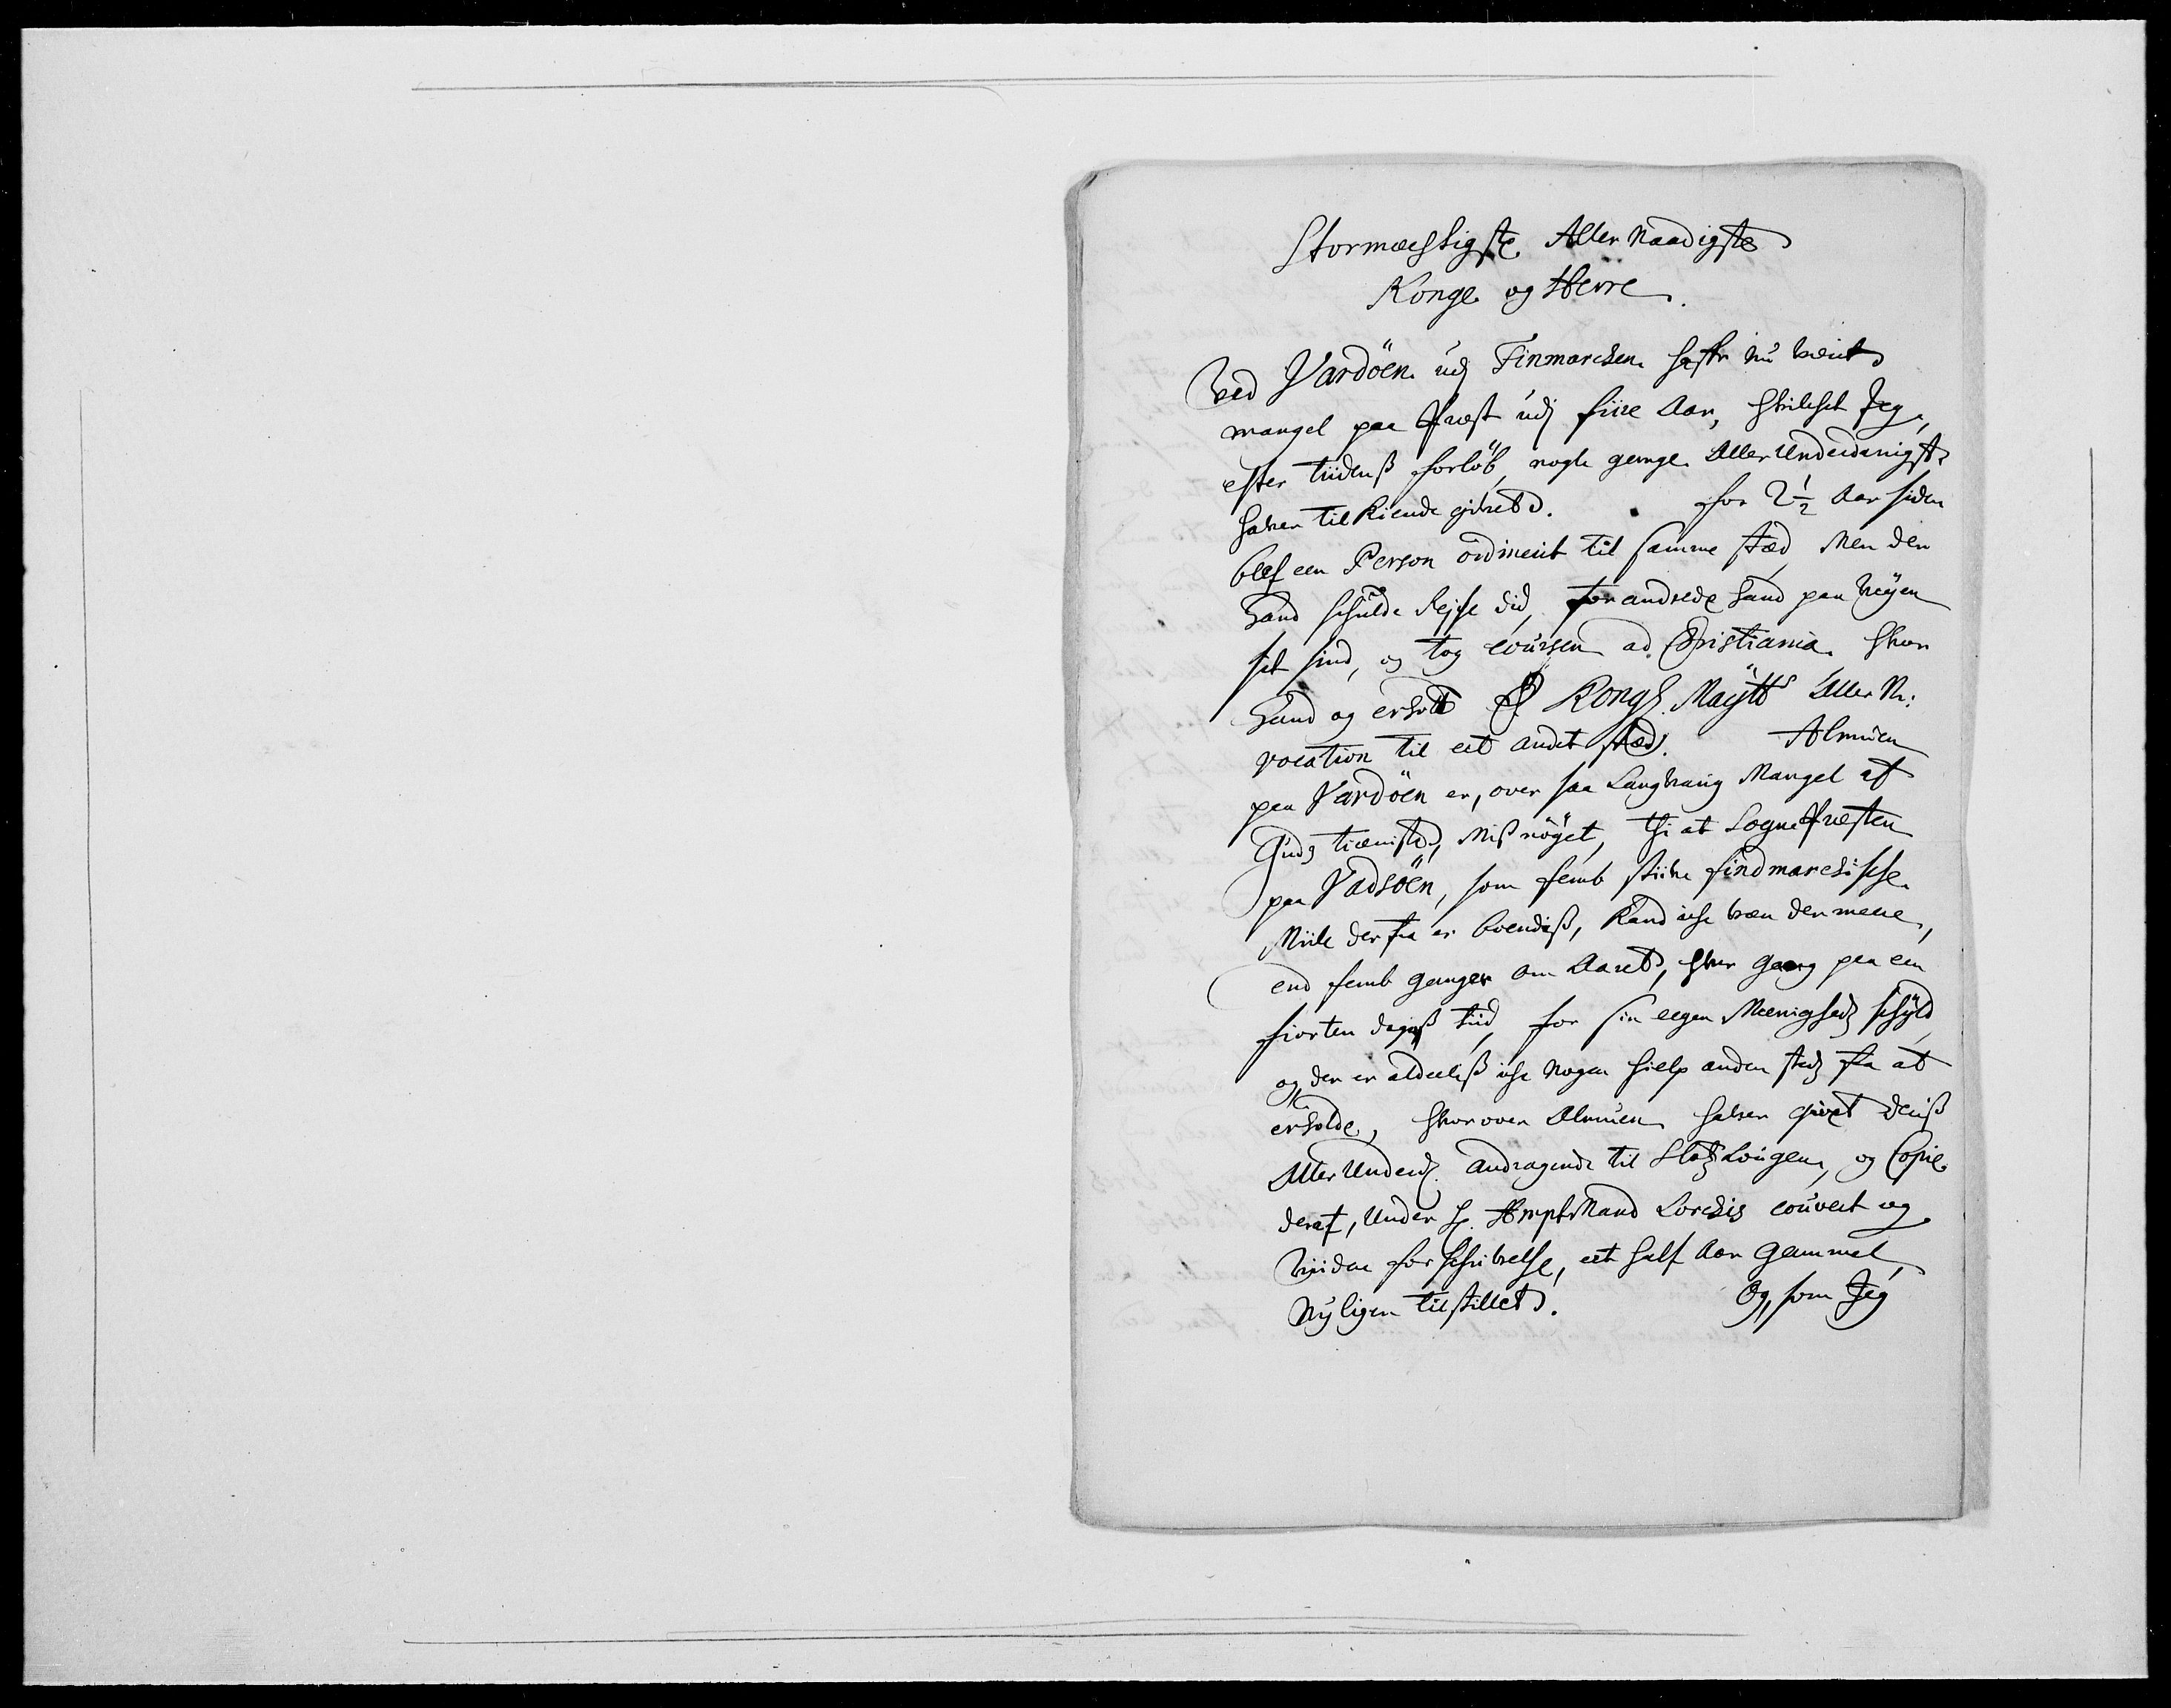 Stormægtigste Aller Naadigste
Konge og Herre.
Ved Vardöen udj Finmarchen hafr nu været
mangel paa Præst udj fiire Aar, hvilchet Jeg,
efter tiidenß forlöb, nogle gange Allerunderdanigst
haver tilkiende givet. for 2½ Aar siden
blef een Person ordineret til samme stæd, Men der
Hand schulde Rejse did, forandrede hand paa veyen
sit sind, og tog coursen ad Christiania. hvor
Hand og erholt Kongl. Maÿtts Aller N:
vocation til eet andet stæd. Almuen
paa Vardöen er, over saa Langvarig Mangel af
Guds tieniste, Misnöyet, thi at SognePræsten
paa Vadsöen, som femb stiive findmarchische
Miile derfra er boendiß, Kand iche være der meere,
end femb ganger om Aaret, hver gang paa een
fiorten dagiß tiid, for sin eegen Meenigheds schyld,
og der er aldeeliß iche nogen hielp anden steds fra at
erholde, hvorover Almuen haver givet deriß
Aller Underd. andragende til StatsLougen, og Copie
deraf, under H. AmptMand Lorchis couvert og
viidere forschrivelse, eet half Aar gammel,
Nyligen tilstillet. Og, som Jeg